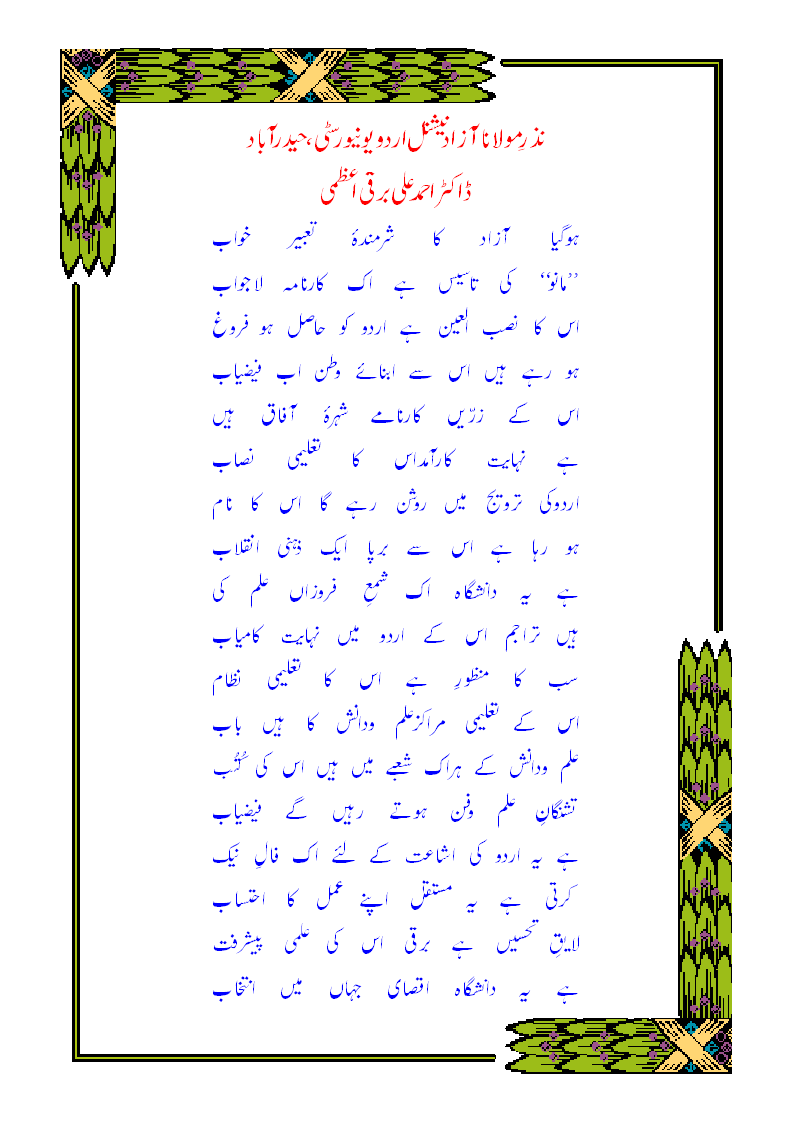 نذرِ مولانا آزاد نیشنل اردو یونیورسٹی، حیدرآباد
ڈاکٹر احمد علی برقی اعظمی
ہوگیا آزاد کا شرمندۂ تعبیر خواب
’’مانو‘‘ کی تاسیس ہے اک کارنامہ لاجواب
اس کا نصب العین ہے اردو کو حاصل ہو فروغ
ہو رہے ہیں اس سے ابنائے وطن اب فیضیاب
اس کے زرّیں کارنامے شہرۂ آفاق ہیں
ہے نہایت کارآمد اس کا تعلیمی نصاب
اردو کی ترویج میں روشن رہے گا اس کا نام
ہو رہا ہے اس سے برپا ایک ذہنی انقلاب
ہے یہ دانشگاہ اک شمعِ فروزاں علم کی
ہیں تراجم اس کے اردو میں نہایت کامیاب
سب کا منظورِ ہے اس کا تعلیمی نظام
اس کے تعلیمی مراکز علم ودانش کا ہیں باب
علم ودانش کے ہر اک شعبے میں ہیں اس کی کُتُب
تشنگانِ علم وفن ہوتے رہیں گے فیضیاب
ہے یہ اردو کی اشاعت کے لئے اک فالِ نیک
کرتی ہے یہ مستقل اپنے عمل کا احتساب
لایقِ تحسیں ہے برقی اس کی علمی پیشرفت
ہے یہ دانشگاہ اقصای جہاں میں انتخاب